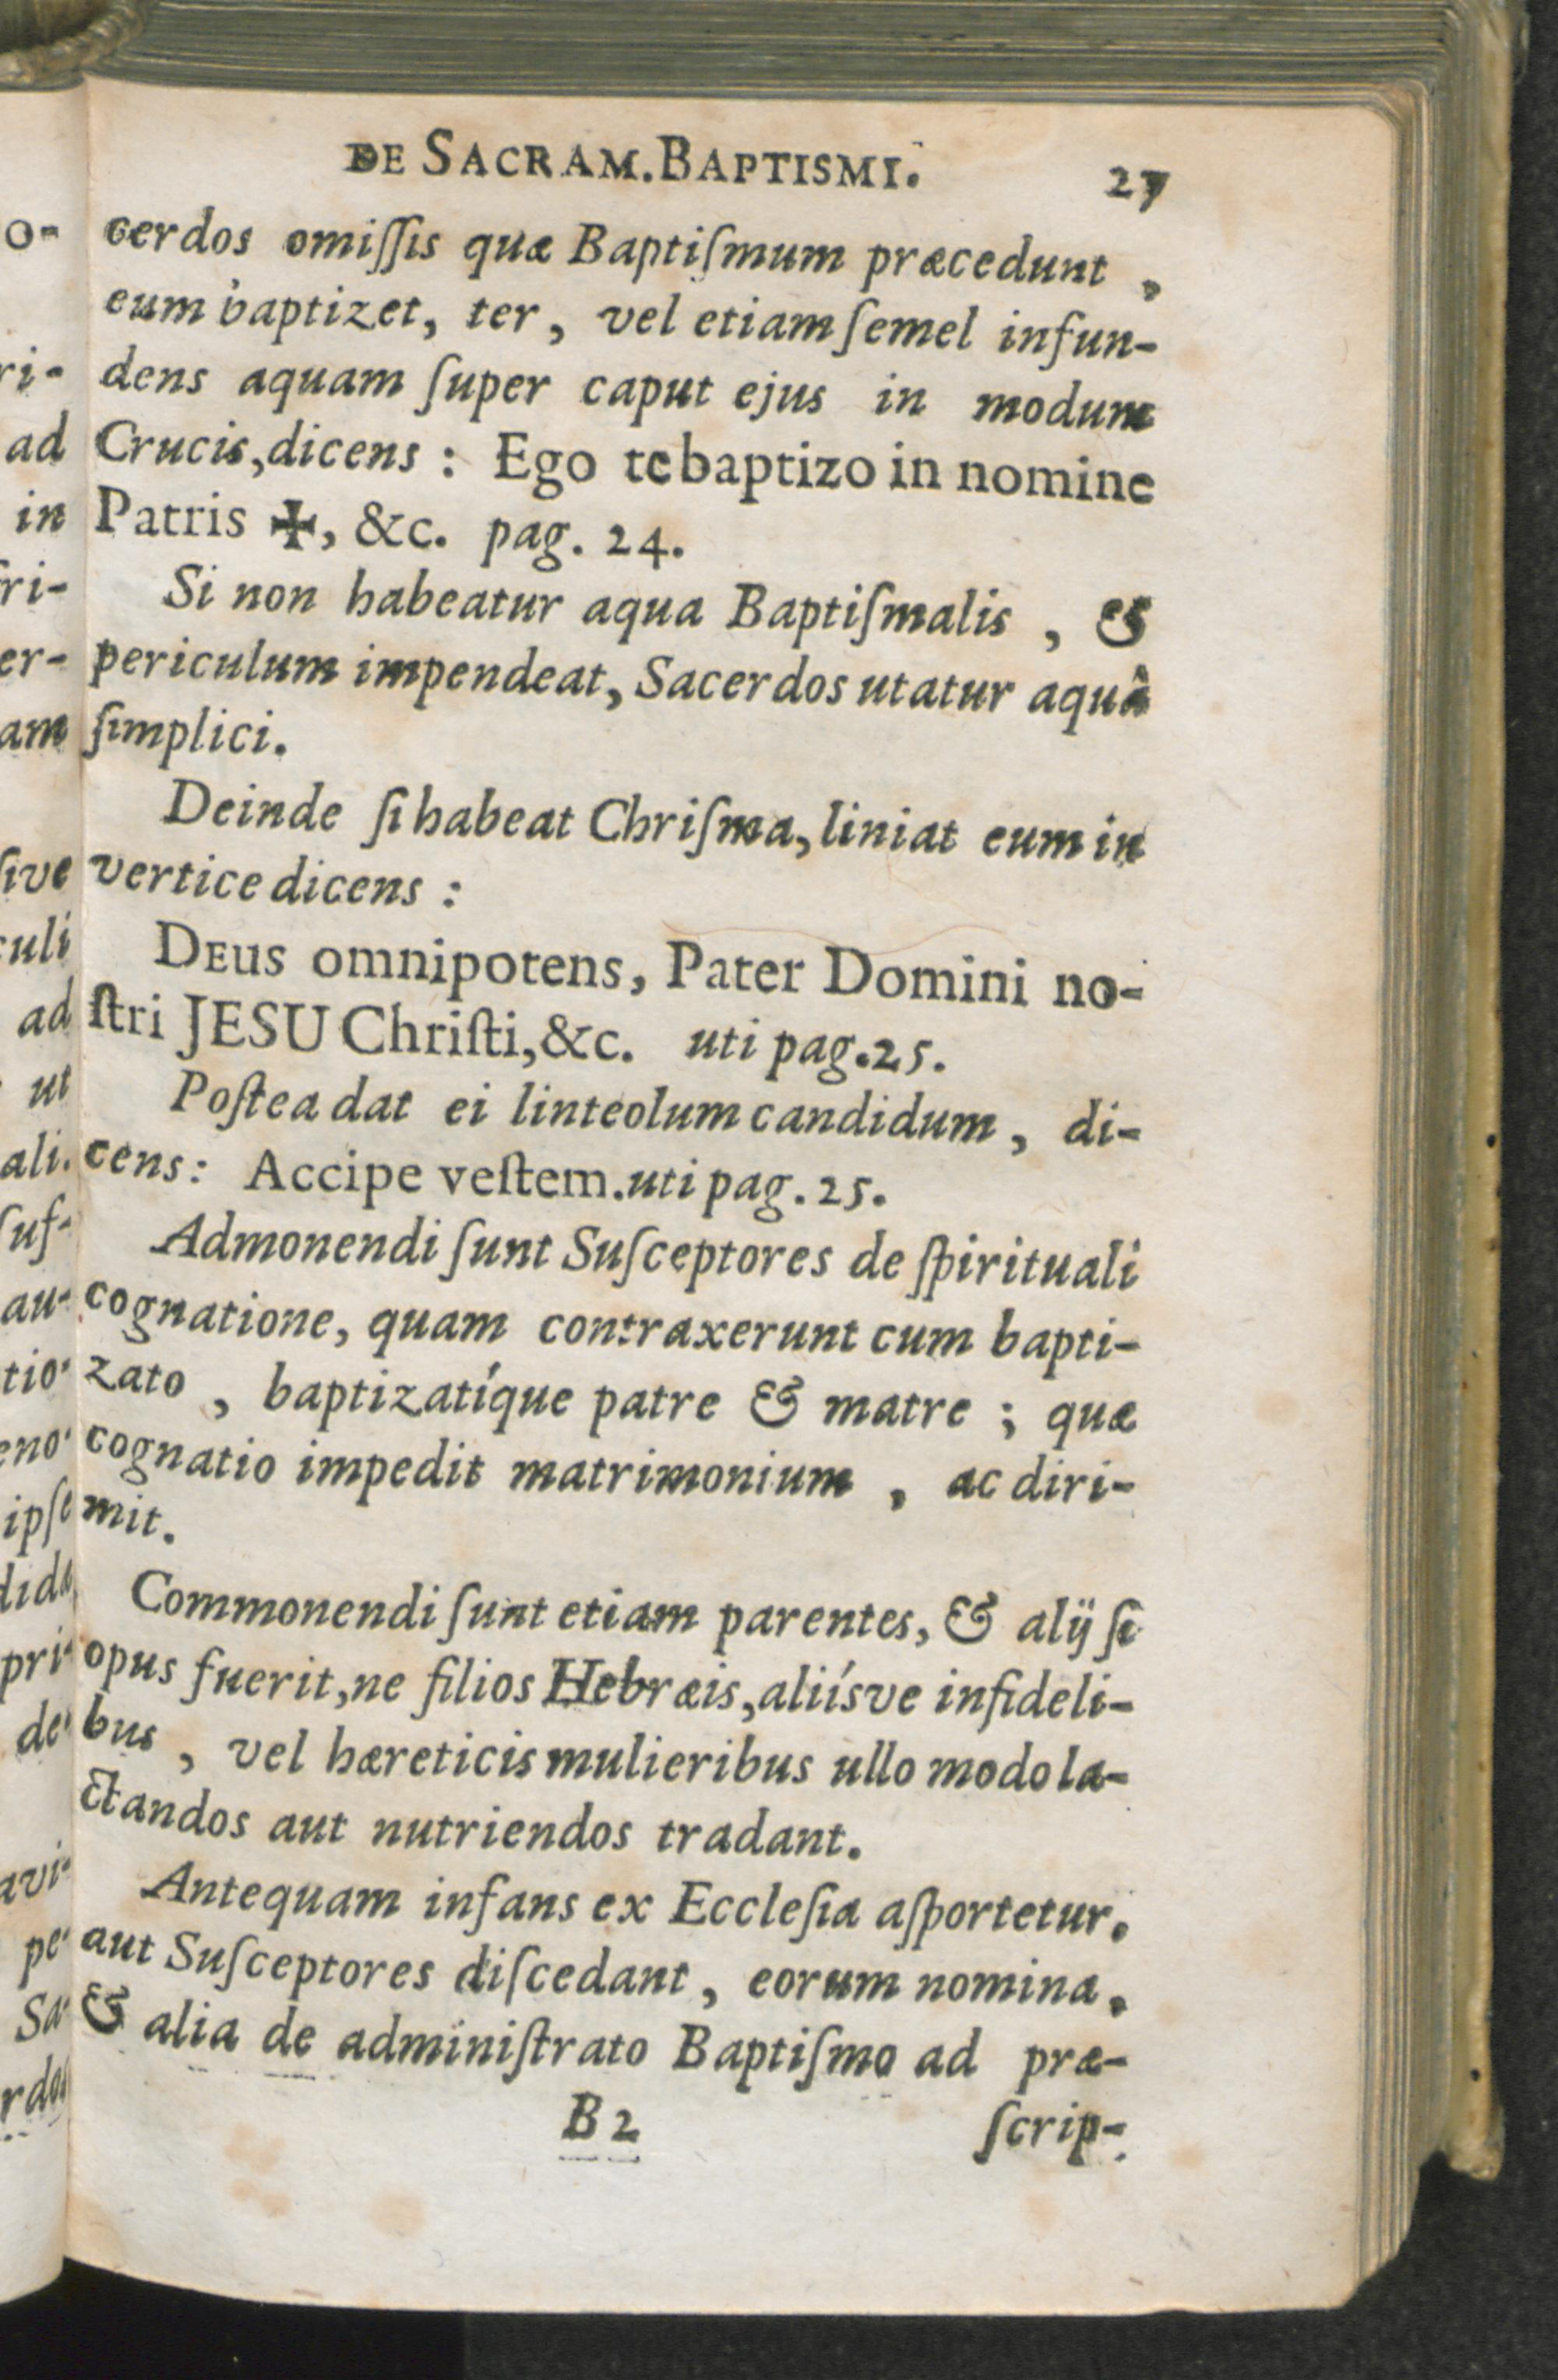 DE SACRAM. BAPTISMI. 27
cerdos omiſſis quæ Baptiſmum præcedunt,
eum baptizet, ter, vel etiam ſemel infun-
dens aquam ſuper caput ejus in modum
Crucis, dicens: Ego te baptizo in nomine
Patris ✠, &c. pag. 24.
Si non habeatur aqua Baptiſmalis, &
periculum impendeat, Sacerdos utatur aquâ
ſimplici.
Deinde ſi habeat Chriſma, liniat eum in
vertice dicens:
DEus omnipotens, Pater Domini no-
ſtri JESU Chriſti, &c. uti pag. 25.
Poſtea dat ei linteolum candidum, di-
cens: Accipe veſtem. uti pag. 25.
Admonendi ſunt Suſceptores de ſpirituali
cognatione, quam contraxerunt cum bapti-
zato, baptizatíque patre & matre; quæ
cognatio impedit matrimonium, ac diri-
mit.
Commonendi ſunt etiam parentes, & alij ſi
opus fuerit, ne filios Hebræis, aliísve infideli-
bus, vel hæreticis mulieribus ullo modo la-
ctandos aut nutriendos tradant.
Antequam infans ex Eccleſia aſportetur,
aut Suſceptores diſcedant, eorum nomina,
& alia de adminiſtrato Baptiſmo ad præ-
B 2 ſcrip-